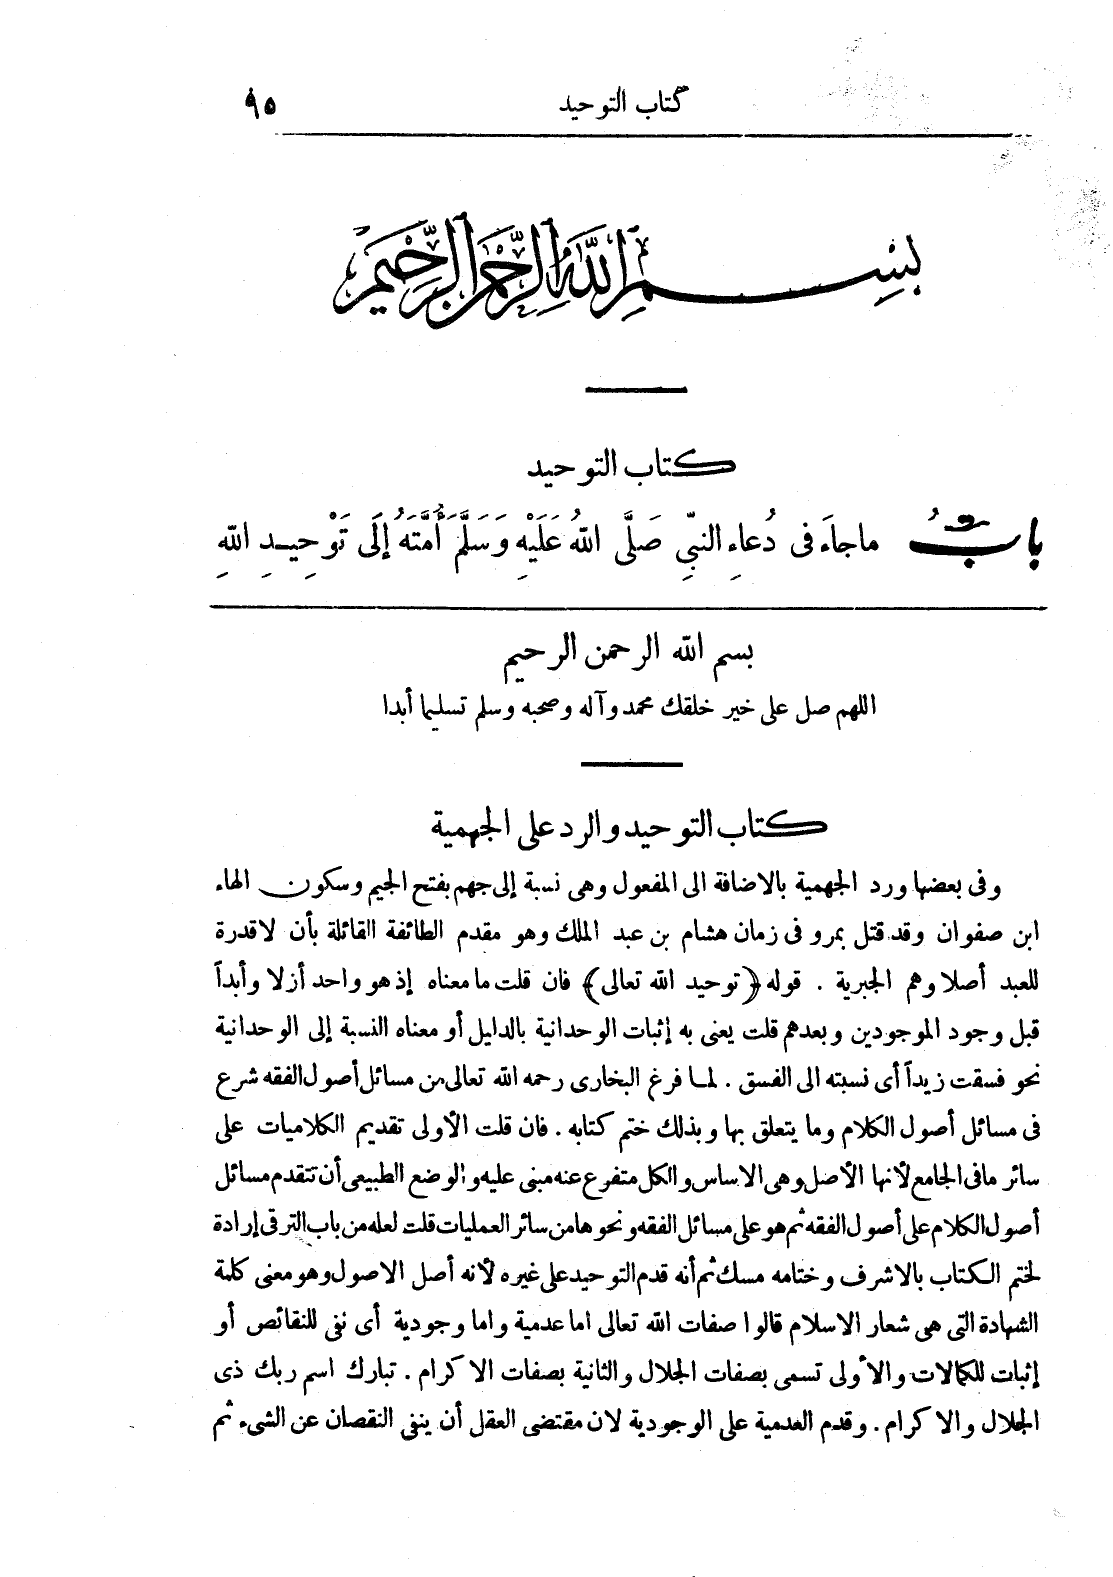 كتاب التوحيد ٩٥
بسم الله الرحمن الرحيم
كتاب التوحيد
بابُ ماجاءَ فى دُعاءِ النبىِّ صَلَّى اللهُ عَلَيْهِ وَسَلَّمَ أُمَّتَهُ إلَى تَوْحِيدِ اللهِ
بسم الله الرحمن الرحيم
اللهم صل على خير خلقك محمد وآله وصحبه وسلم تسليما أبدا
كتاب التوحيد والرد على الجهمية
وفى بعضها ورد الجهمية بالاضافة الى المفعول وهى نسبة إلى جهم بفتح الجيم وسكون الهاء
ابن صفوان وقد قتل بمرو فى زمان هشام بن عبد الملك وهو مقدم الطائفة القائلة بأن لاقدرة
للعبد أصلا وهم الجبرية . قوله ﴿توحيد الله تعالى﴾ فان قلت ما معناه إذ هو واحد أزلا وأبداً
قبل وجود الموجودين وبعدهم قلت يعنى به إثبات الوحدانية بالدليل أو معناه النسبة إلى الوحدانية
نحو فسقت زيداً أى نسبته الى الفسق . لما فرغ البخارى رحمه الله تعالى من مسائل أصول الفقه شرع
فى مسائل أصول الكلام وما يتعلق بها وبذلك ختم كتابه . فان قلت الأولى تقديم الكلاميات على
سائر مافى الجامع لأنها الأصل وهى الاساس والكل متفرع عنه مبنى عليه والوضع الطبيعى أن تتقدم مسائل
أصول الكلام على أصول الفقه ثم هو على مسائل الفقه ونحوها من سائر العمليات قلت لعله من باب الترقى إرادة
لختم الكتاب بالاشرف وختامه مسك ثم أنه قدم التوحيد على غيره لأنه أصل الاصول وهو معنى كلمة
الشهادة التى هى شعار الاسلام قالوا صفات الله تعالى اما عدمية واما وجودية أى نفى للنقائص أو
إثبات للكمالات والأولى تسمى بصفات الجلال والثانية بصفات الاكرام . تبارك اسم ربك ذى
الجلال والاكرام . وقدم العدمية على الوجودية لان مقتضى العقل أن ينفى النقصان عن الشىء ثم